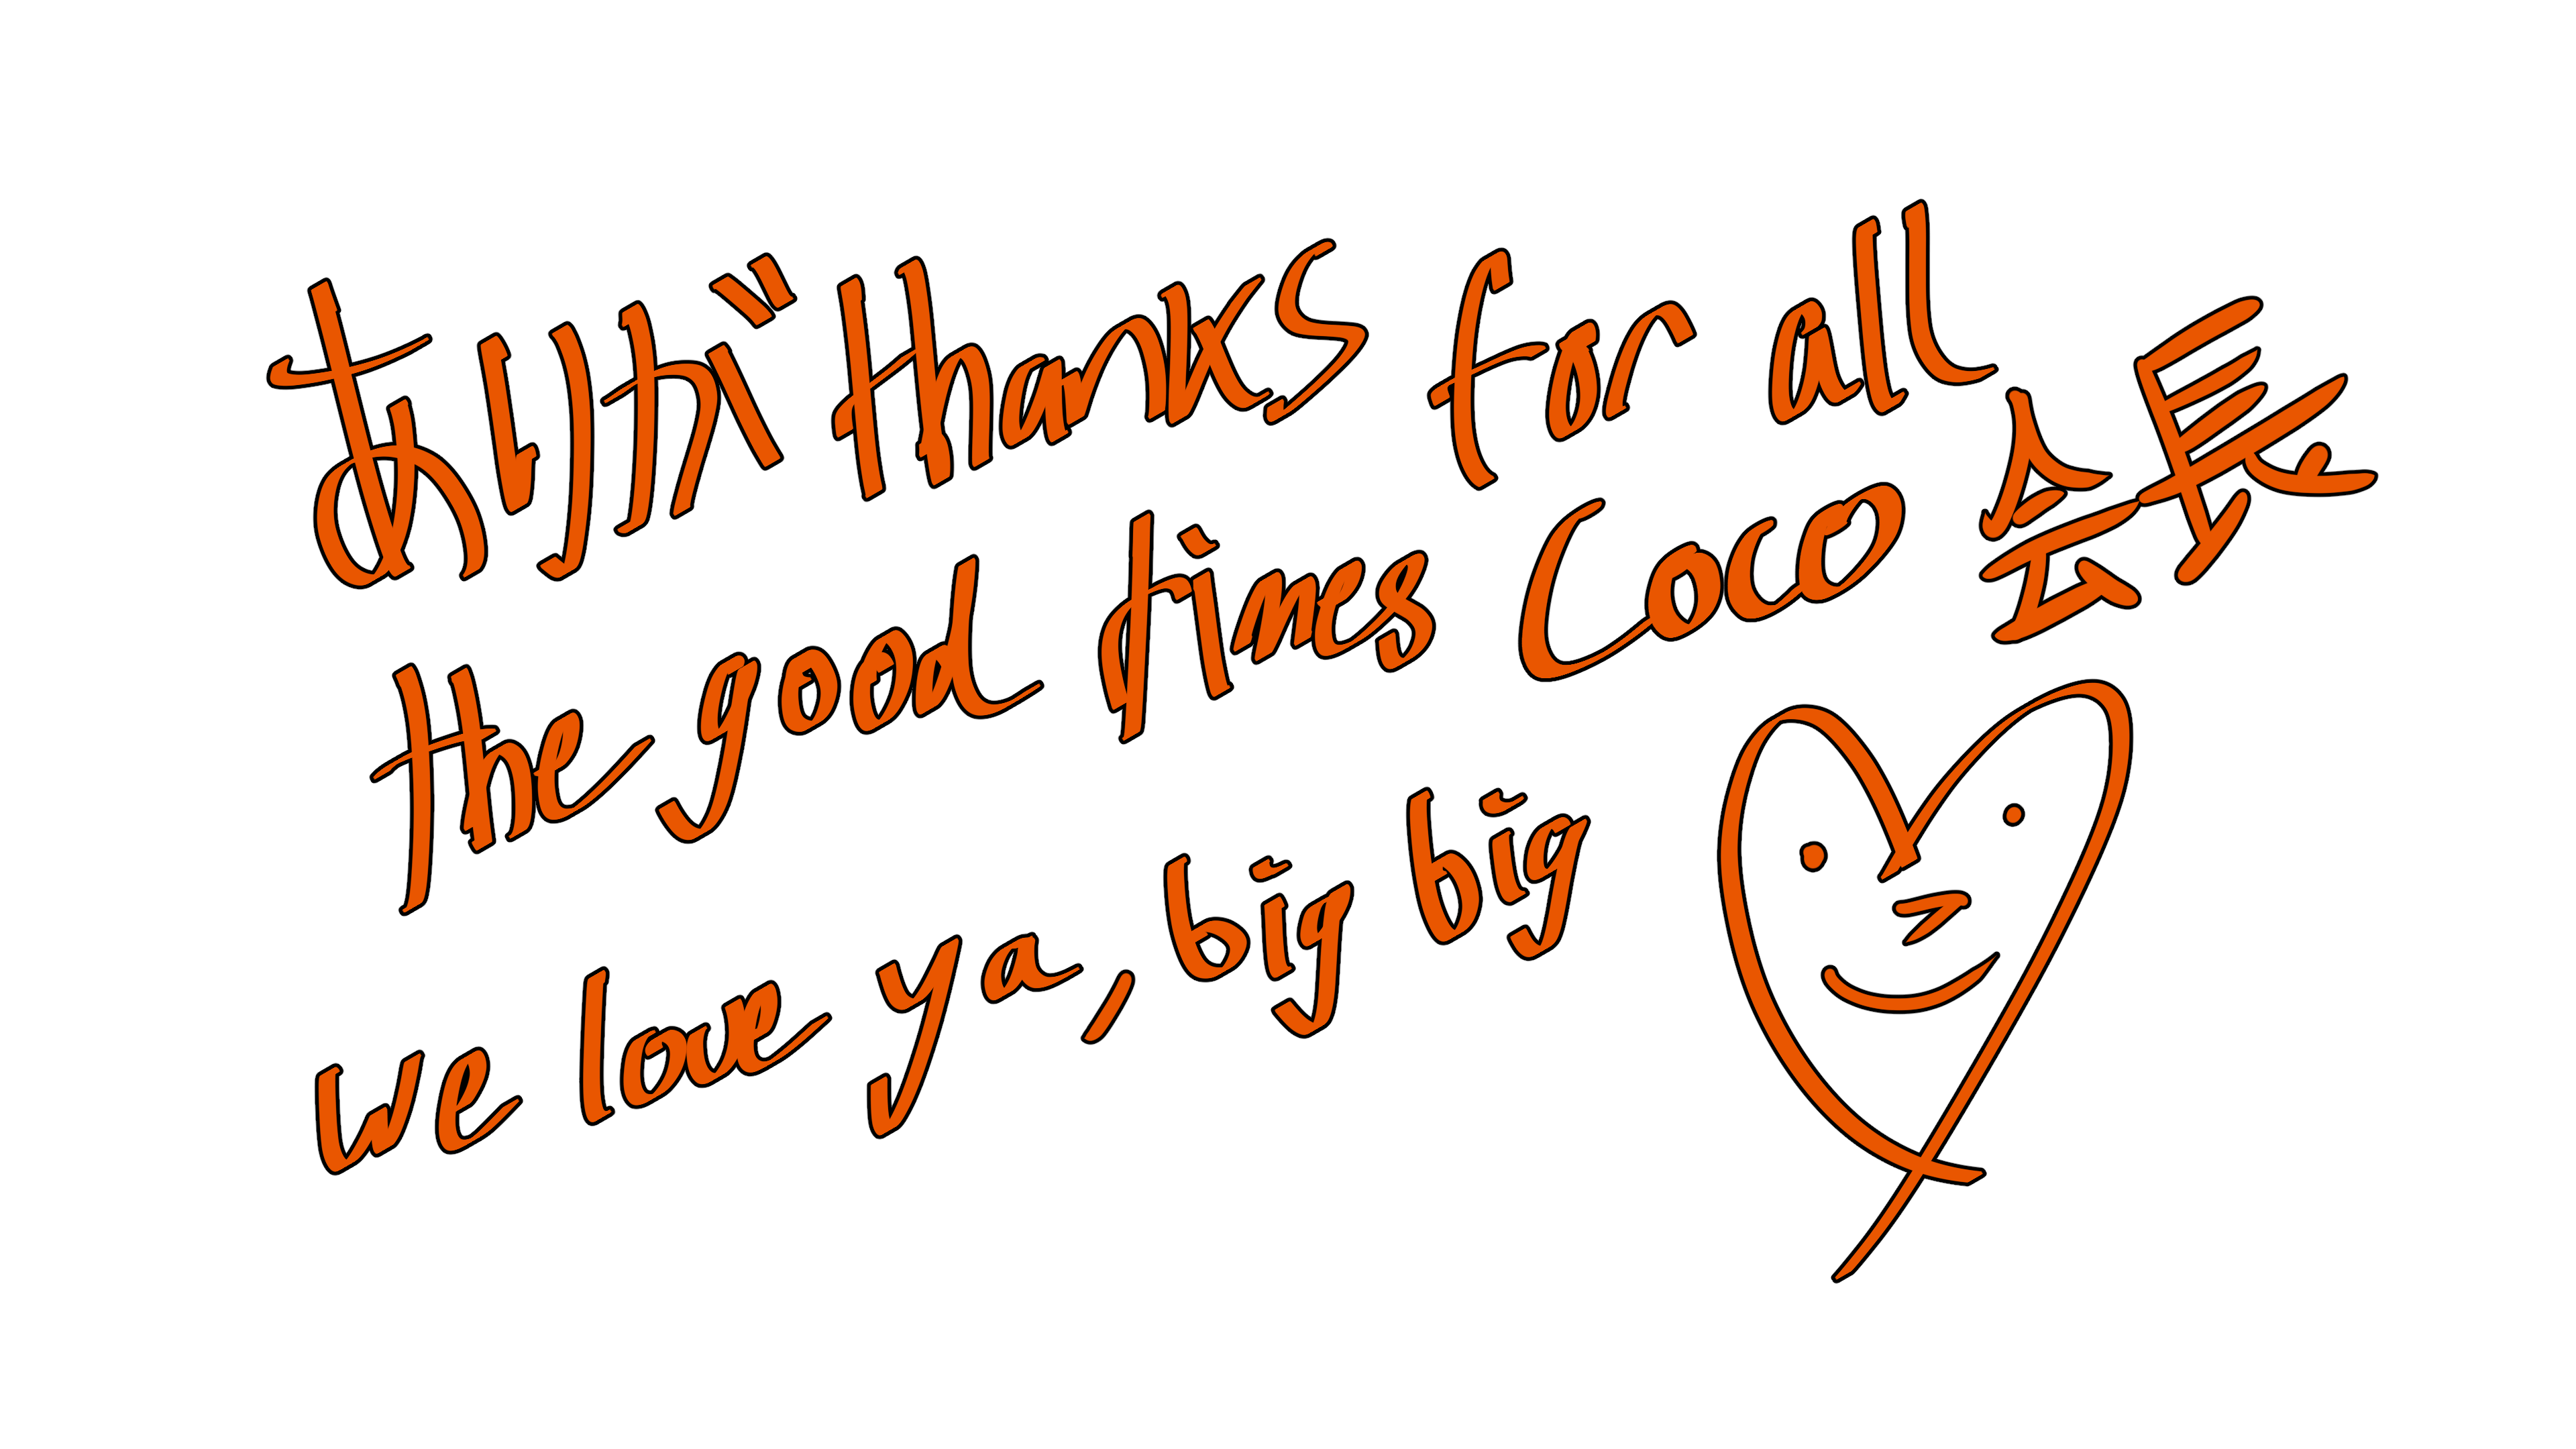 ありがthanks for all
the good times Coco 会長
we love ya, big big